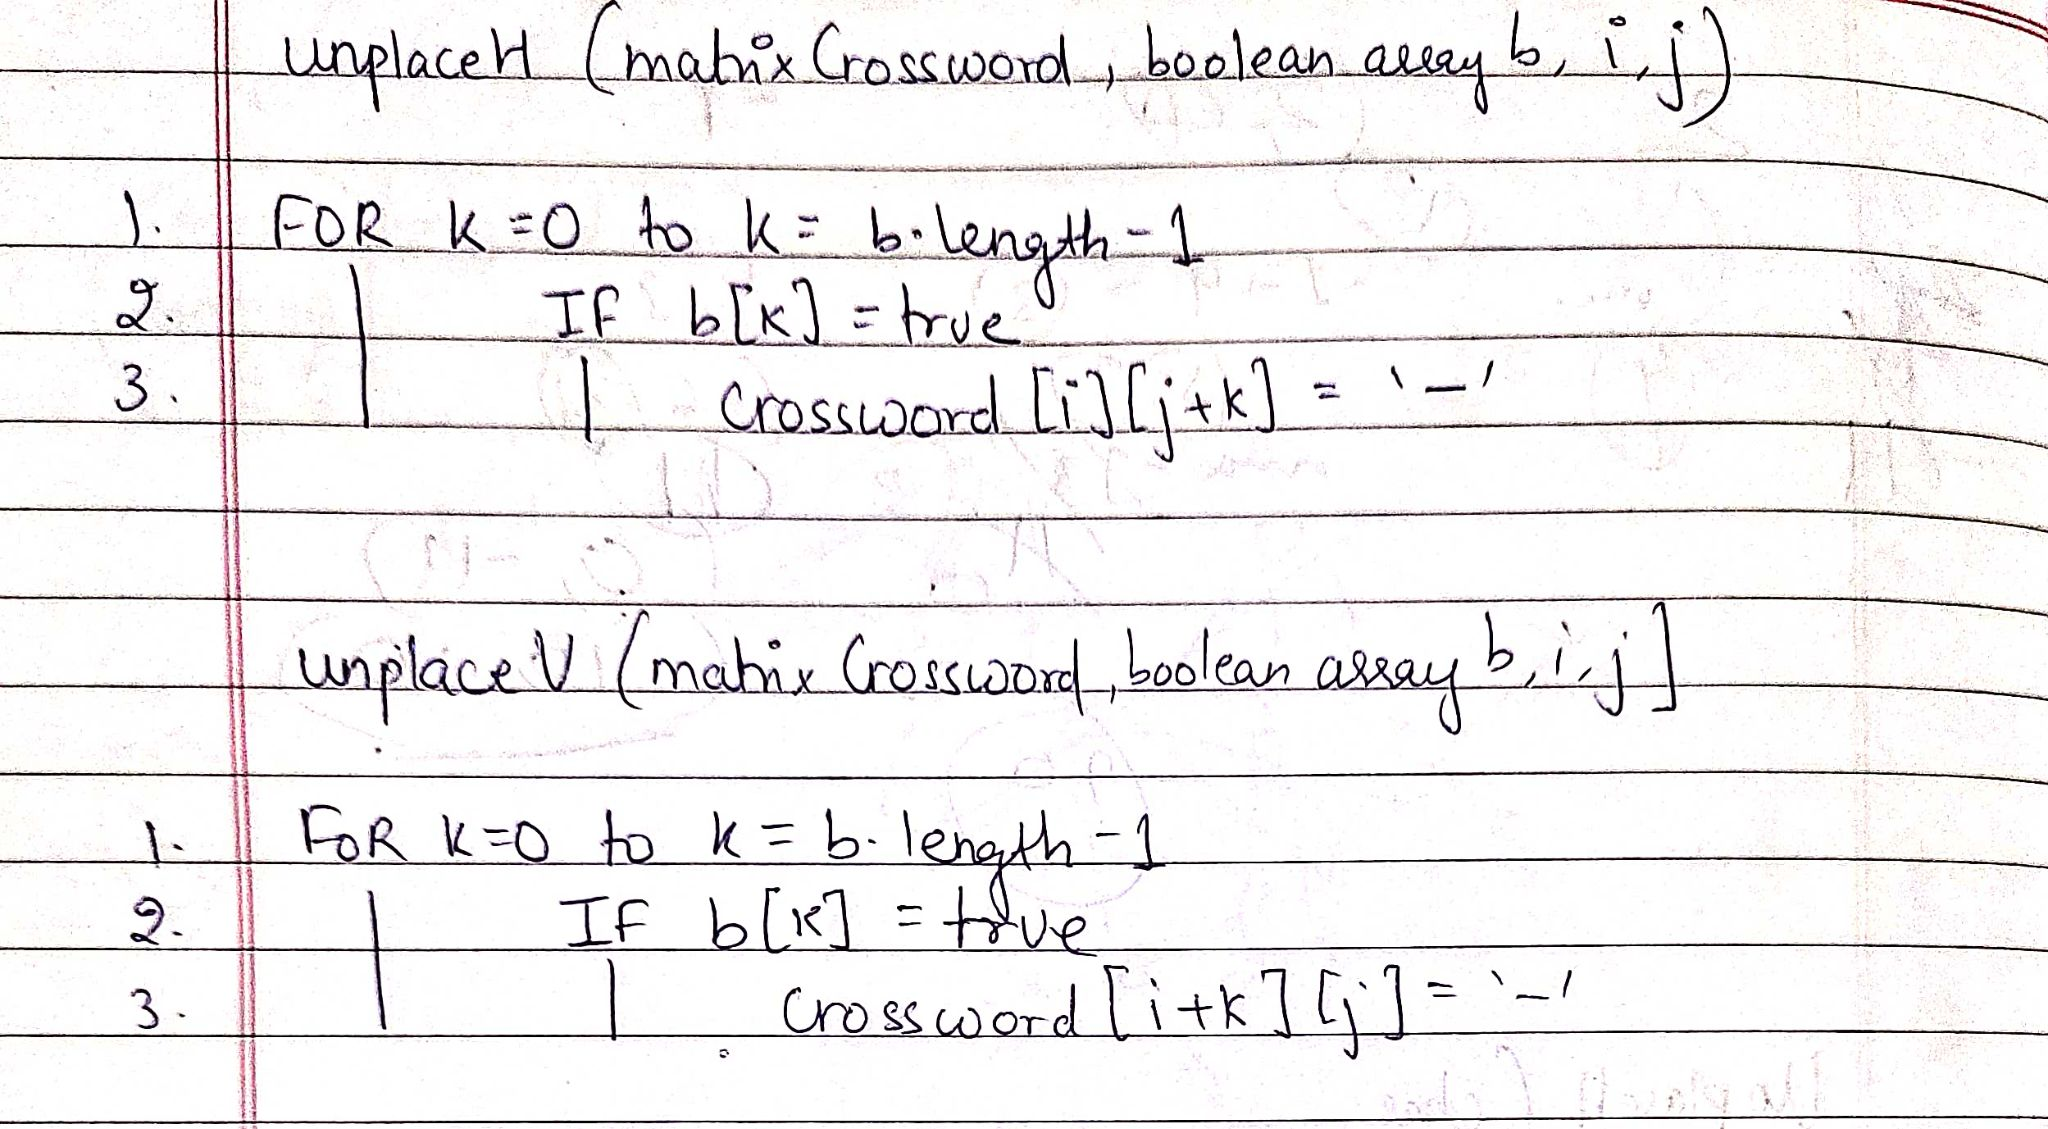 unplaceH (matrix Crossword, boolean array b, i, j)
1. FOR k=0 to k= b.length-1
2. IF b[k] = true
3. Crossword [i][j+k] = '-'
unplaceV (matrix Crossword, boolean array b, i, j]
1. FOR k=0 to k= b.length-1
2. IF b[k] = true
3. Crossword [i+k][j] = '-'